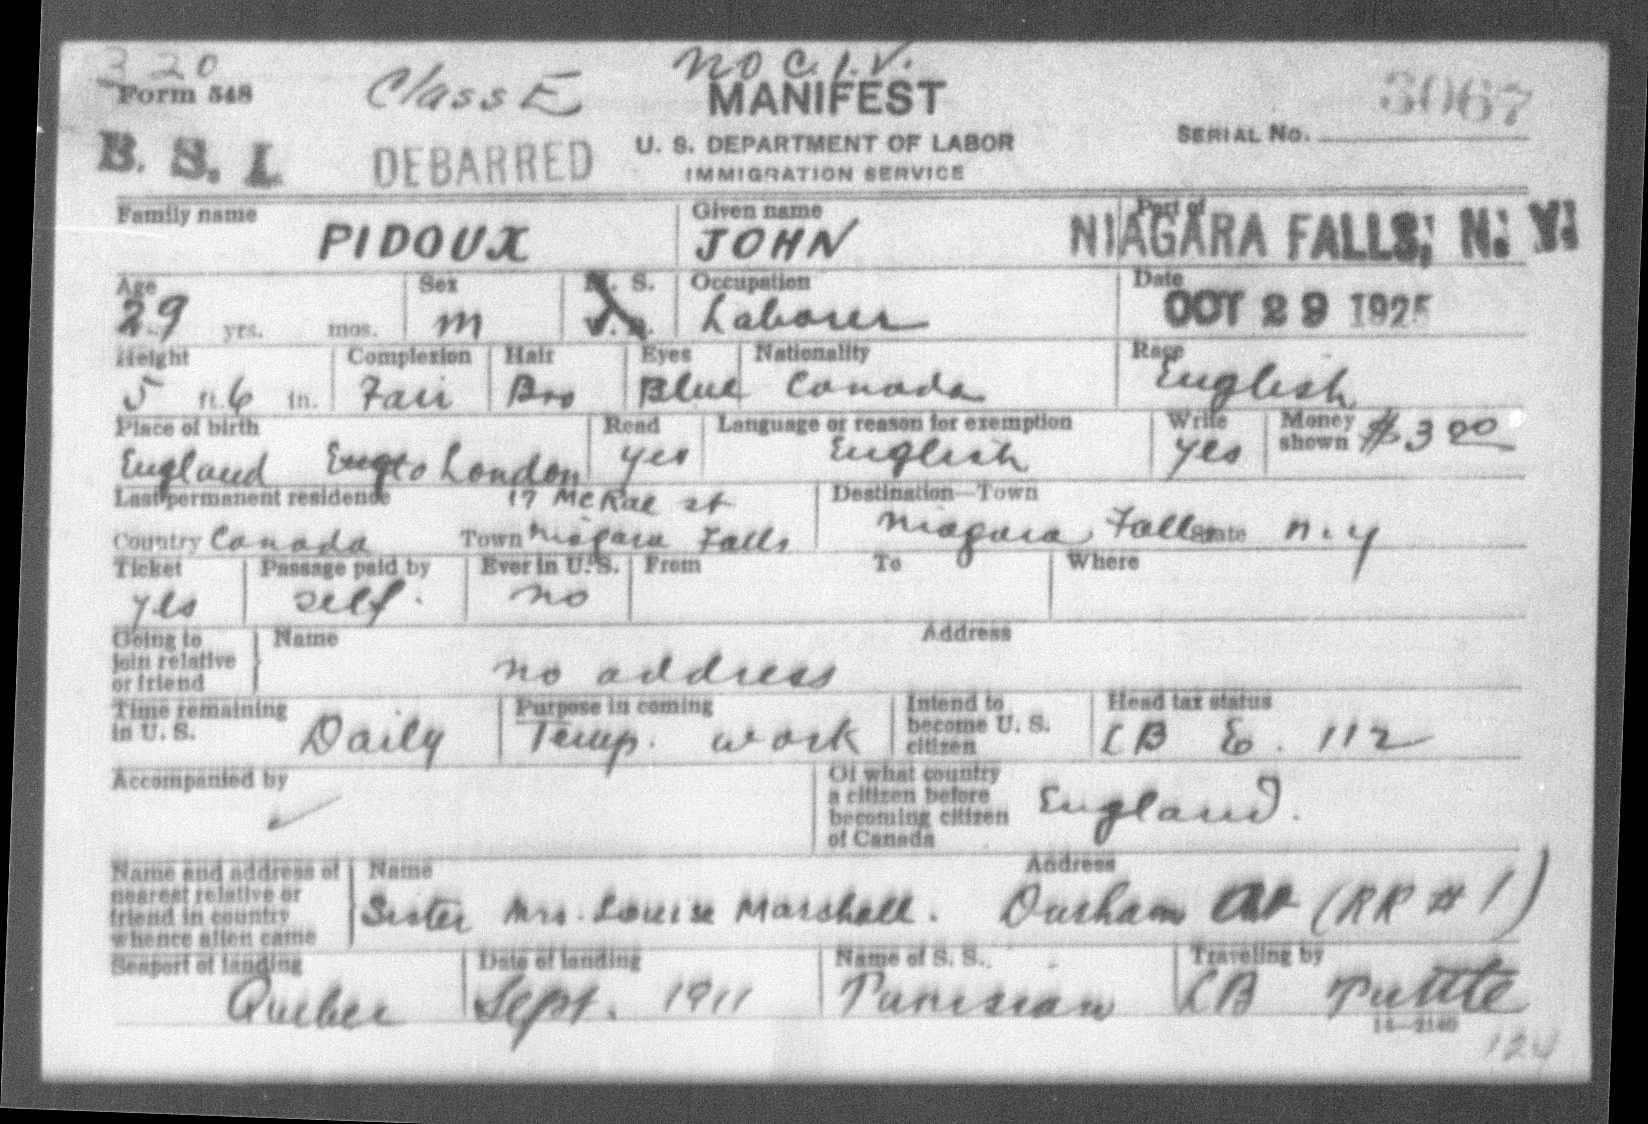 320
no C.I.V.
Form 548 Class E MANIFEST 3067
B. S. I. DEBARRED U. S. DEPARTMENT OF LABOR SERIAL No.
IMMIGRATION SERVICE
Family name Given name Port of
PIDOUX JOHN NIAGARA FALLS, N. Y.
Age Sex M. S. Occupation Date
29 yrs. mos. m Laborer OCT 29 1925
Height Complexion Hair Eyes Nationality Race
5 ft. 6 in. Fair Bro Blue Canada English
Place of birth Read Language or reason for exemption Write Money shown $3 00
England London yes English yes
Last permanent residence 17 McRae st Destination—Town
Country Canada Town Niagara Falls Niagara Falls State N.Y
Ticket Passage paid by Ever in U. S. From To Where
yes self. no
Going to join relative or friend Name Address
no address
Time remaining in U. S. Daily Purpose in coming Temp. work Intend to become U. S. citizen Head tax status
CB E. 112
Accompanied by Of what country a citizen before becoming citizen of Canada England.
Name and address of nearest relative or friend in country whence alien came Name Address
Sister Mrs. Louise Marshall. Durham (RR # 1)
Seaport of landing Date of landing Name of S. S. Traveling by
Quebec Sept. 1911 Tunisian CB Tuttle
14—2140
124